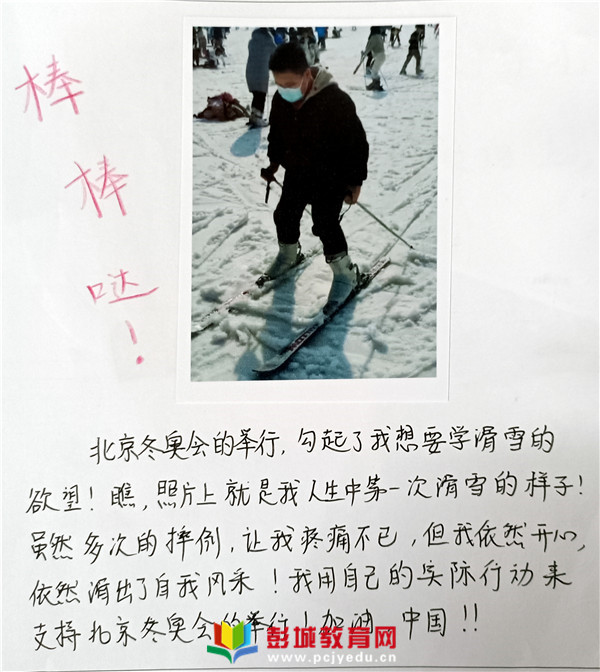 棒
棒
哒
！
北京冬奥会的举行，勾起了我想要学滑雪的
欲望！瞧，照片上就是我人生中第一次滑雪的样子！
虽然多次的摔倒，让我疼痛不已，但我依然开心，
依然滑出了自我风采！我用自己的实际行动来
支持北京冬奥会的举行！加油 中国！！
彭城教育网
www.pcjyedu.cn